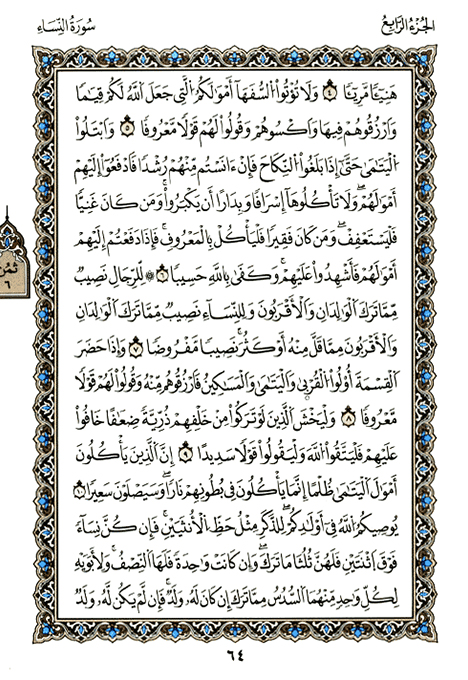 الجُزْءُ الرَّابِعُ
سُورَةُ النِّسَاءِ
هَنِيٓـٔٗا مَّرِيٓـٔٗا ٤ وَلَا تُؤْتُوا۟ السُّفَهَآ أَمْوَٰلَكُمُ الَّتِي جَعَلَ اللَّهُ لَكُمْ قِيَٰمٗا
وَارْزُقُوهُمْ فِيهَا وَاكْسُوهُمْ وَقُولُوا۟ لَهُمْ قَوْلٗا مَّعْرُوفٗا ٥ وَابْتَلُوا۟
الْيَتَٰمَىٰ حَتَّىٰٓ إِذَا بَلَغُوا۟ النِّكَاحَ فَإِنْ ءَانَسْتُم مِّنْهُمْ رُشْدٗا فَادْفَعُوٓا۟ إِلَيْهِمْ
أَمْوَٰلَهُمْ ۖ وَلَا تَأْكُلُوهَآ إِسْرَافٗا وَبِدَارًا أَن يَكْبَرُوا۟ ۚ وَمَن كَانَ غَنِيّٗا
فَلْيَسْتَعْفِفْ ۖ وَمَن كَانَ فَقِيرٗا فَلْيَأْكُلْ بِالْمَعْرُوفِ ۚ فَإِذَا دَفَعْتُمْ إِلَيْهِمْ
أَمْوَٰلَهُمْ فَأَشْهِدُوا۟ عَلَيْهِمْ ۚ وَكَفَىٰ بِاللَّهِ حَسِيبٗا ٦ ۞ لِّلرِّجَالِ نَصِيبٞ
مِّمَّا تَرَكَ الْوَٰلِدَانِ وَالْأَقْرَبُونَ وَلِلنِّسَآءِ نَصِيبٞ مِّمَّا تَرَكَ الْوَٰلِدَانِ
وَالْأَقْرَبُونَ مِمَّا قَلَّ مِنْهُ أَوْ كَثُرَ ۚ نَصِيبٗا مَّفْرُوضٗا ٧ وَإِذَا حَضَرَ
الْقِسْمَةَ أُو۟لُوا۟ الْقُرْبَىٰ وَالْيَتَٰمَىٰ وَالْمَسَٰكِينُ فَارْزُقُوهُم مِّنْهُ وَقُولُوا۟ لَهُمْ قَوْلٗا
مَّعْرُوفٗا ٨ وَلْيَخْشَ الَّذِينَ لَوْ تَرَكُوا۟ مِنْ خَلْفِهِمْ ذُرِّيَّةٗ ضِعَٰفًا خَافُوا۟
عَلَيْهِمْ فَلْيَتَّقُوا۟ اللَّهَ وَلْيَقُولُوا۟ قَوْلٗا سَدِيدًا ٩ إِنَّ الَّذِينَ يَأْكُلُونَ
أَمْوَٰلَ الْيَتَٰمَىٰ ظُلْمًا إِنَّمَا يَأْكُلُونَ فِي بُطُونِهِمْ نَارٗا ۖ وَسَيَصْلَوْنَ سَعِيرٗا ١٠
يُوصِيكُمُ اللَّهُ فِيٓ أَوْلَٰدِكُمْ ۖ لِلذَّكَرِ مِثْلُ حَظِّ الْأُنثَيَيْنِ ۚ فَإِن كُنَّ نِسَآءٗ
فَوْقَ اثْنَتَيْنِ فَلَهُنَّ ثُلُثَا مَا تَرَكَ ۖ وَإِن كَانَتْ وَٰحِدَةٗ فَلَهَا النِّصْفُ ۚ وَلِأَبَوَيْهِ
لِكُلِّ وَٰحِدٖ مِّنْهُمَا السُّدُسُ مِمَّا تَرَكَ إِن كَانَ لَهُۥ وَلَدٞ ۚ فَإِن لَّمْ يَكُن لَّهُۥ وَلَدٞ
ثُمُن
٦
٦٤